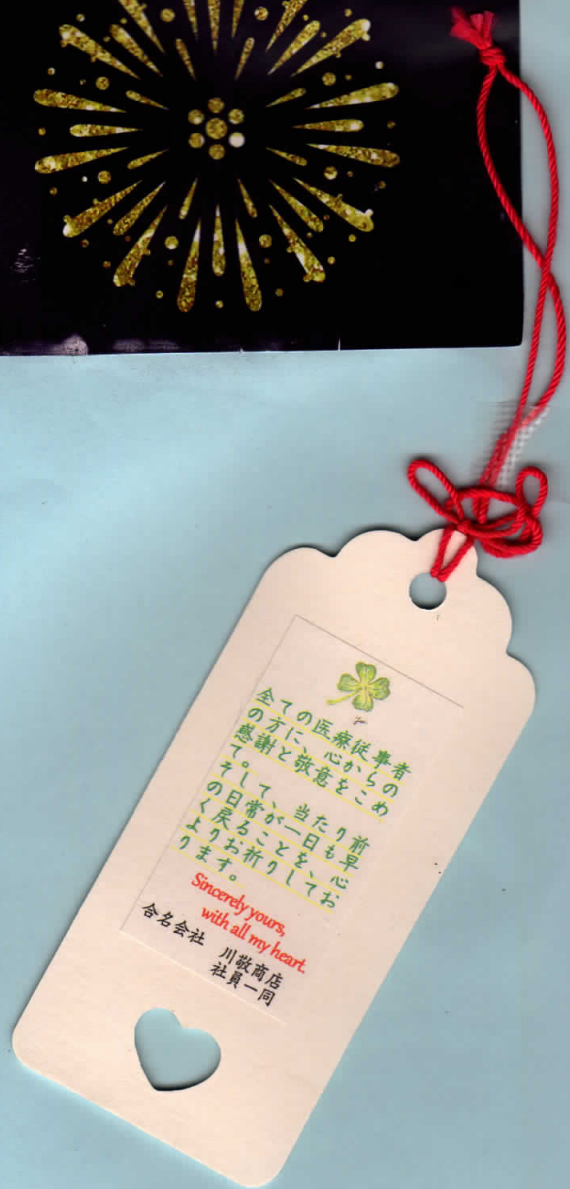 全ての医療従事者
の方に、心からの
感謝と敬意をこめ
て。
そして、当たり前
の日常が一日も早
く戻ることを、心
よりお祈りしてお
ります。
Sincerely yours,
with all my heart.
合名会社
川敬商店
社員一同